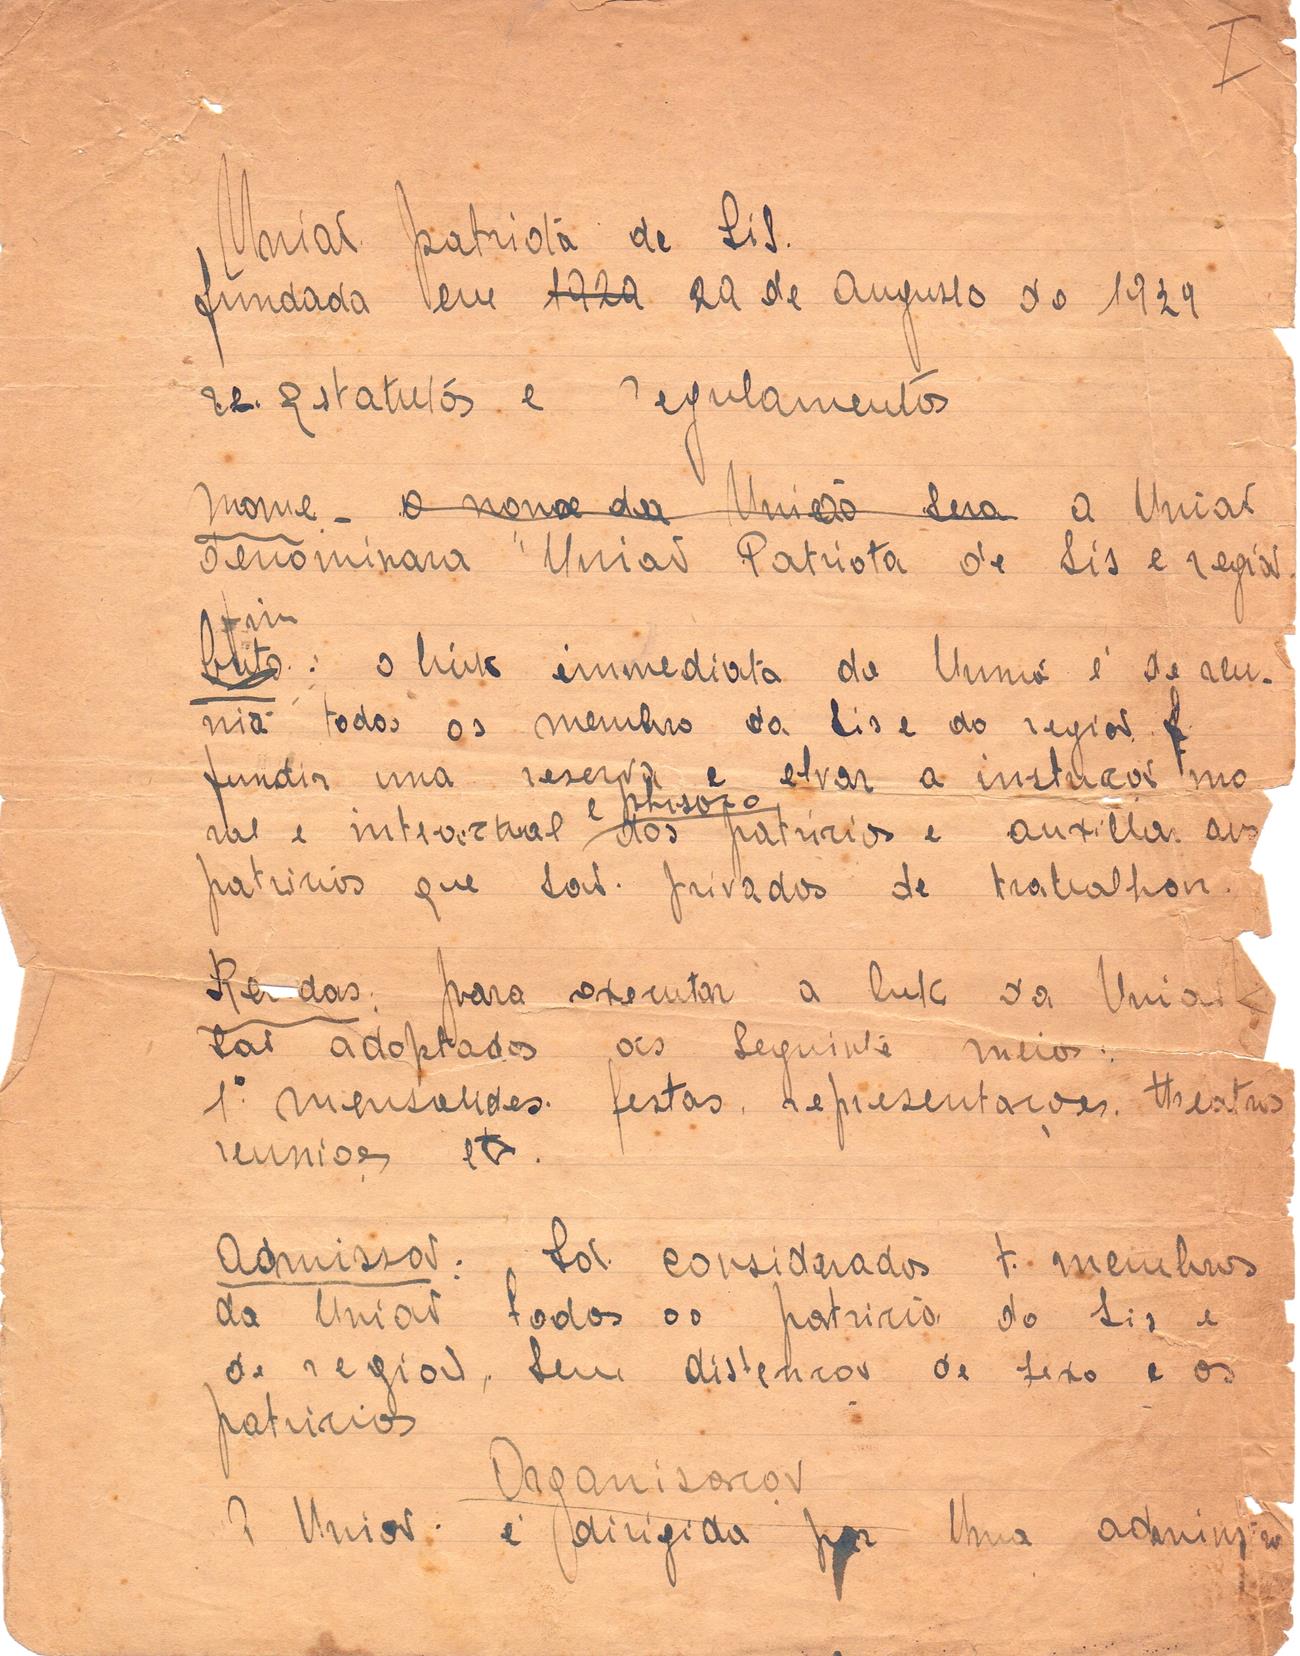 I
Uniaõ patriota de Lis.
fundada em 1929 29 de Augusto do 1929
re. Estatutos e regulamentos
Nome - O nome da União sera a Uniaõ
denominara "Uniaõ Patriota de Lis e regiaõ.
Fim
: o immediata da é de reu-
nir todos os membro da Lis e do regiaõ f
fundir una reserva e elvar a instrucaõ mo
ral e e phisoco
dos patricios e auxiliar aos
patricios que saõ. privados de trabalhar.
Rendas: para executar a da Uniaõ
saõ adoptados os seguinte meios:
1º mensalides. festas, representaçoes, theatros
reunioes etc.
Admissaõ: Saõ considerados t. membros
da Uniaõ todos os patricio do Lis e
de regiaõ, sem distencaõ de sexo e os
patricios
Organisacaõ
Uniaõ. é dirigida por Uma